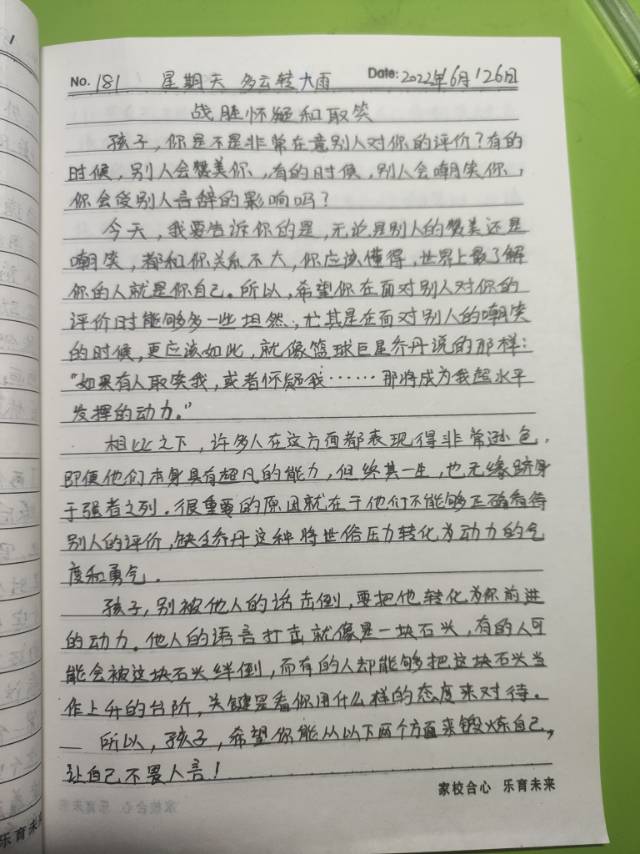 No. 181 星期天 多云转大雨 Date: 2022年6月26日
战胜怀疑和取笑
孩子，你是不是非常在意别人对你的评价？有的
时候，别人会赞美你，有的时候，别人会嘲笑你，
你会受别人言辞的影响吗？
今天，我要告诉你的是，无论是别人的赞美还是
嘲笑，都和你关系不大，你应该懂得，世界上最了解
你的人就是你自己。所以，希望你在面对别人对你的
评价时能够多一些坦然，尤其是在面对别人的嘲笑
的时候，更应该如此，就像篮球巨星乔丹说的那样：
“如果有人取笑我，或者怀疑我……那将成为我超水平
发挥的动力。”
相比之下，许多人在这方面都表现得非常逊色，
即使他们本身具有超凡的能力，但终其一生，也无缘跻身
于强者之列。很重要的原因就在于他们不能够正确看待
别人的评价，缺乏乔丹这种将世俗压力转化为动力的气
度和勇气。
孩子，别被他人的话击倒，要把他转化为你前进
的动力。他人的语言打击就像是一块石头，有的人可
能会被这块石头绊倒，而有的人却能够把这块石头当
作上升的台阶，关键是看你用什么样的态度来对待。
所以，孩子，希望你能从以下两个方面来锻炼自己，
让自己不畏人言！
家校合心 乐育未来